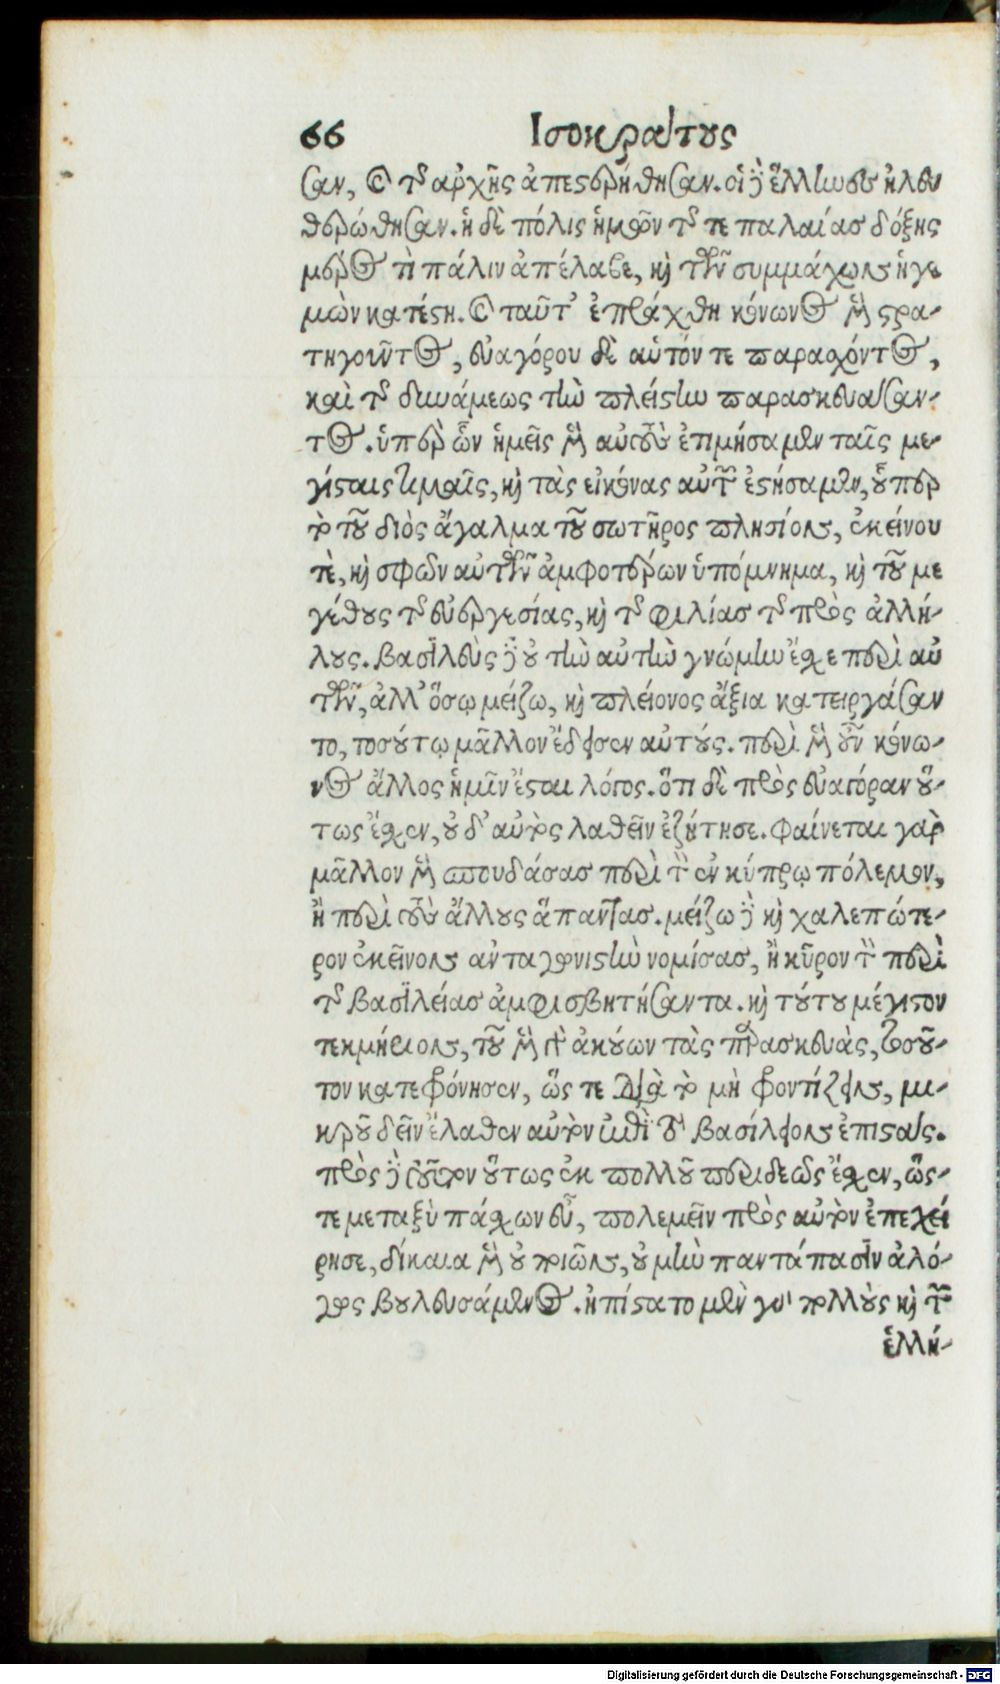 66 Ισοκράτους
σαν, καὶ τῆς ἀρχῆς ἀπεστερήθησαν. οἱ δὲ ἕλληνες ἠλευ
θερώθησαν. ἡ δὲ πόλις ἡμῶν τῆς τε παλαίας δόξης
μέρος τὶ πάλιν ἀπέλαβε, καὶ τῶν συμμάχων ἡγε
μὼν κατέστη. καὶ ταῦτ' ἐπράχθη κόνωνος μὲν στρα-
τηγοῦντος, εὐαγόρου δὲ αὑτόν τε παρασχόντος,
καὶ τῆς δυνάμεως τὴν πλείστην παρασκευάσαν-
τος. ὑπὲρ ὧν ἡμεῖς μὲν αὐτοὺς ἐτιμήσαμεν ταῖς με-
γίσταις τιμαῖς, καὶ τὰς εἰκόνας αὐτῶν ἐστήσαμεν, οὗπερ
τὸ τοῦ διὸς ἄγαλμα τοῦ σωτῆρος πλησίον, ἐκείνου
τὲ, καὶ σφῶν αὐτῶν ἀμφοτέρων ὑπόμνημα, καὶ τοῦ με
γέθους τῆς εὐεργεσίας, καὶ τῆς φιλίας τῆς πρὸς ἀλλή-
λους. βασιλεὺς δὲ οὐ τὴν αὐτὴν γνώμην ἔσχε περὶ αὐ
τῶν, ἀλλ' ὅσῳ μείζω, καὶ πλείονος ἄξια κατειργάσαν
το, τοσούτῳ μᾶλλον ἔδεισεν αὐτούς. περὶ μὲν οὖν κόνω-
νος ἄλλος ἡμῖν ἔσται λόγος. ὅτι δὲ πρὸς εὐαγόραν οὕ-
τως ἔσχεν, οὐδ' αὐτὸς λαθεῖν ἐζήτησε. φαίνεται γὰρ
μᾶλλον μὲν σπουδάσας περὶ τὸν ἐν κύπρῳ πόλεμον,
ἢ περὶ τοὺς ἄλλους ἅπαντας. μείζω δὲ καὶ χαλεπώτε-
ρον ἐκεῖνον ἀνταγωνιστὴν νομίσας, ἢ κῦρον τὸν περὶ
τῆς βασιλείας ἀμφισβητήσαντα. καὶ τούτου μέγιστον
τεκμήριον, τοῦ μὲν γὰρ ἀκούων τὰς παρασκευὰς, τοσοῦ-
τον κατεφρόνησεν, ὥς τε διὰ τὸ μὴ φροντίζειν, μι-
κροῦ δεῖν ἔλαθεν αὐτὸν ἐπὶ τὸ βασίλειον ἐπιστάς.
πρὸς δὲ τοῦτον οὕτως ἐκ πολλοῦ περιδεῶς ἔσχεν, ὥς-
τε μεταξὺ πάσχων εὖ, πολεμεῖν πρὸς αὐτὸν ἐπεχεί
ρησε, δίκαια μὲν οὐ ποιῶν, οὐ μὴν παντάπασιν ἀλό-
γως βουλευσάμενος. ἠπίστατο μὲν γὰρ πολλοὺς καὶ τῶν
ἑλλή-
Digitalisierung gefördert durch die Deutsche Forschungsgemeinschaft - DFG